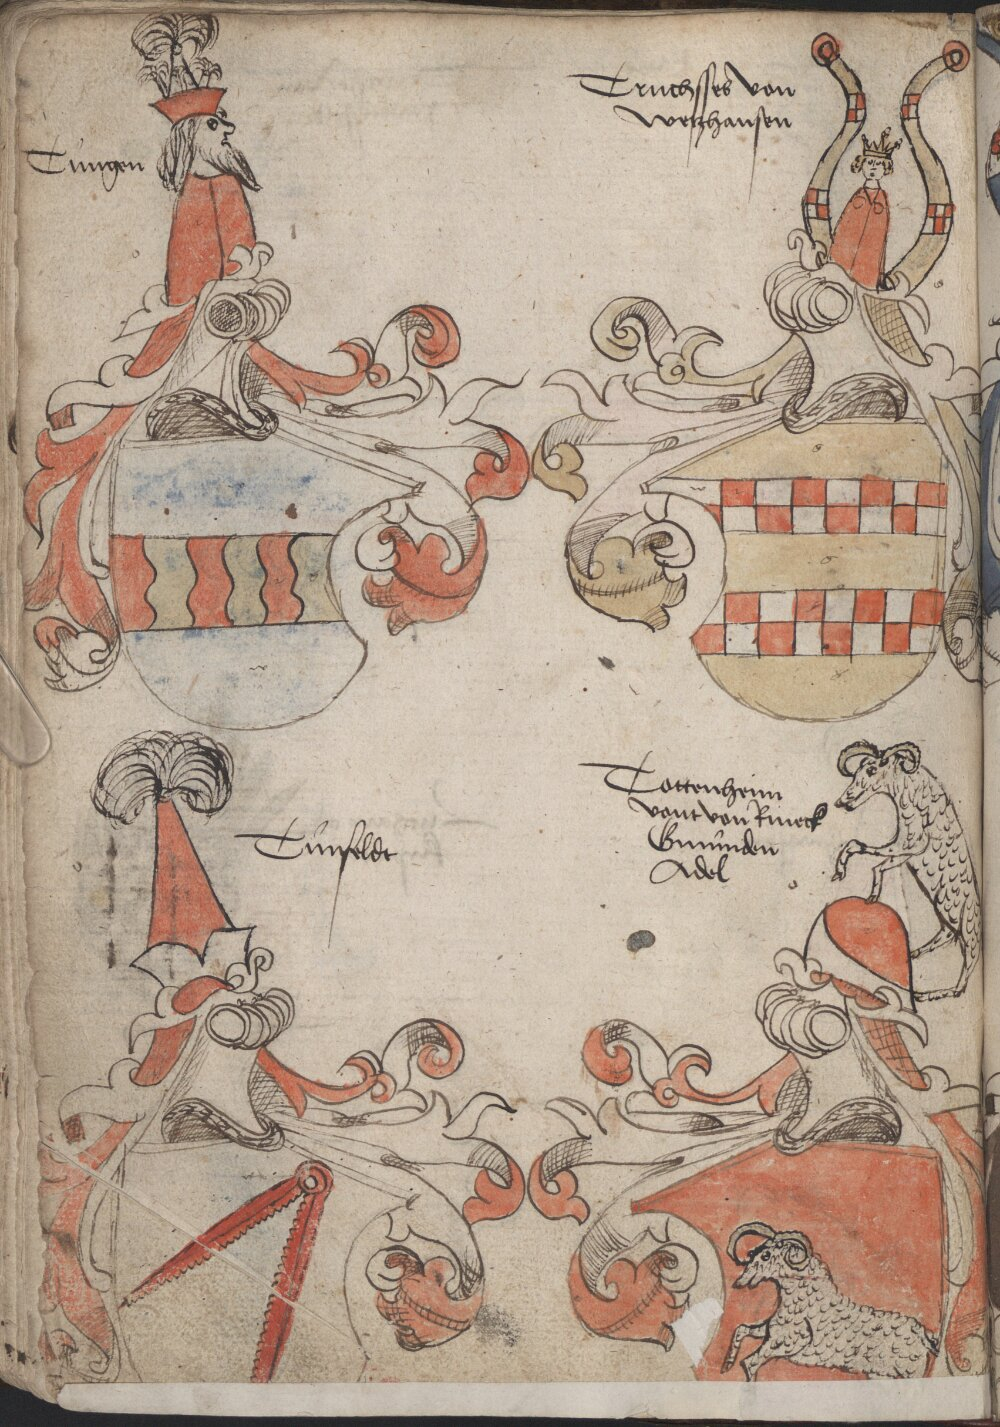 Tungen
Truchsses von
wetzhausen
Tunfeldt
Tottenheim
vont von Rineck
Gmunden
Adel